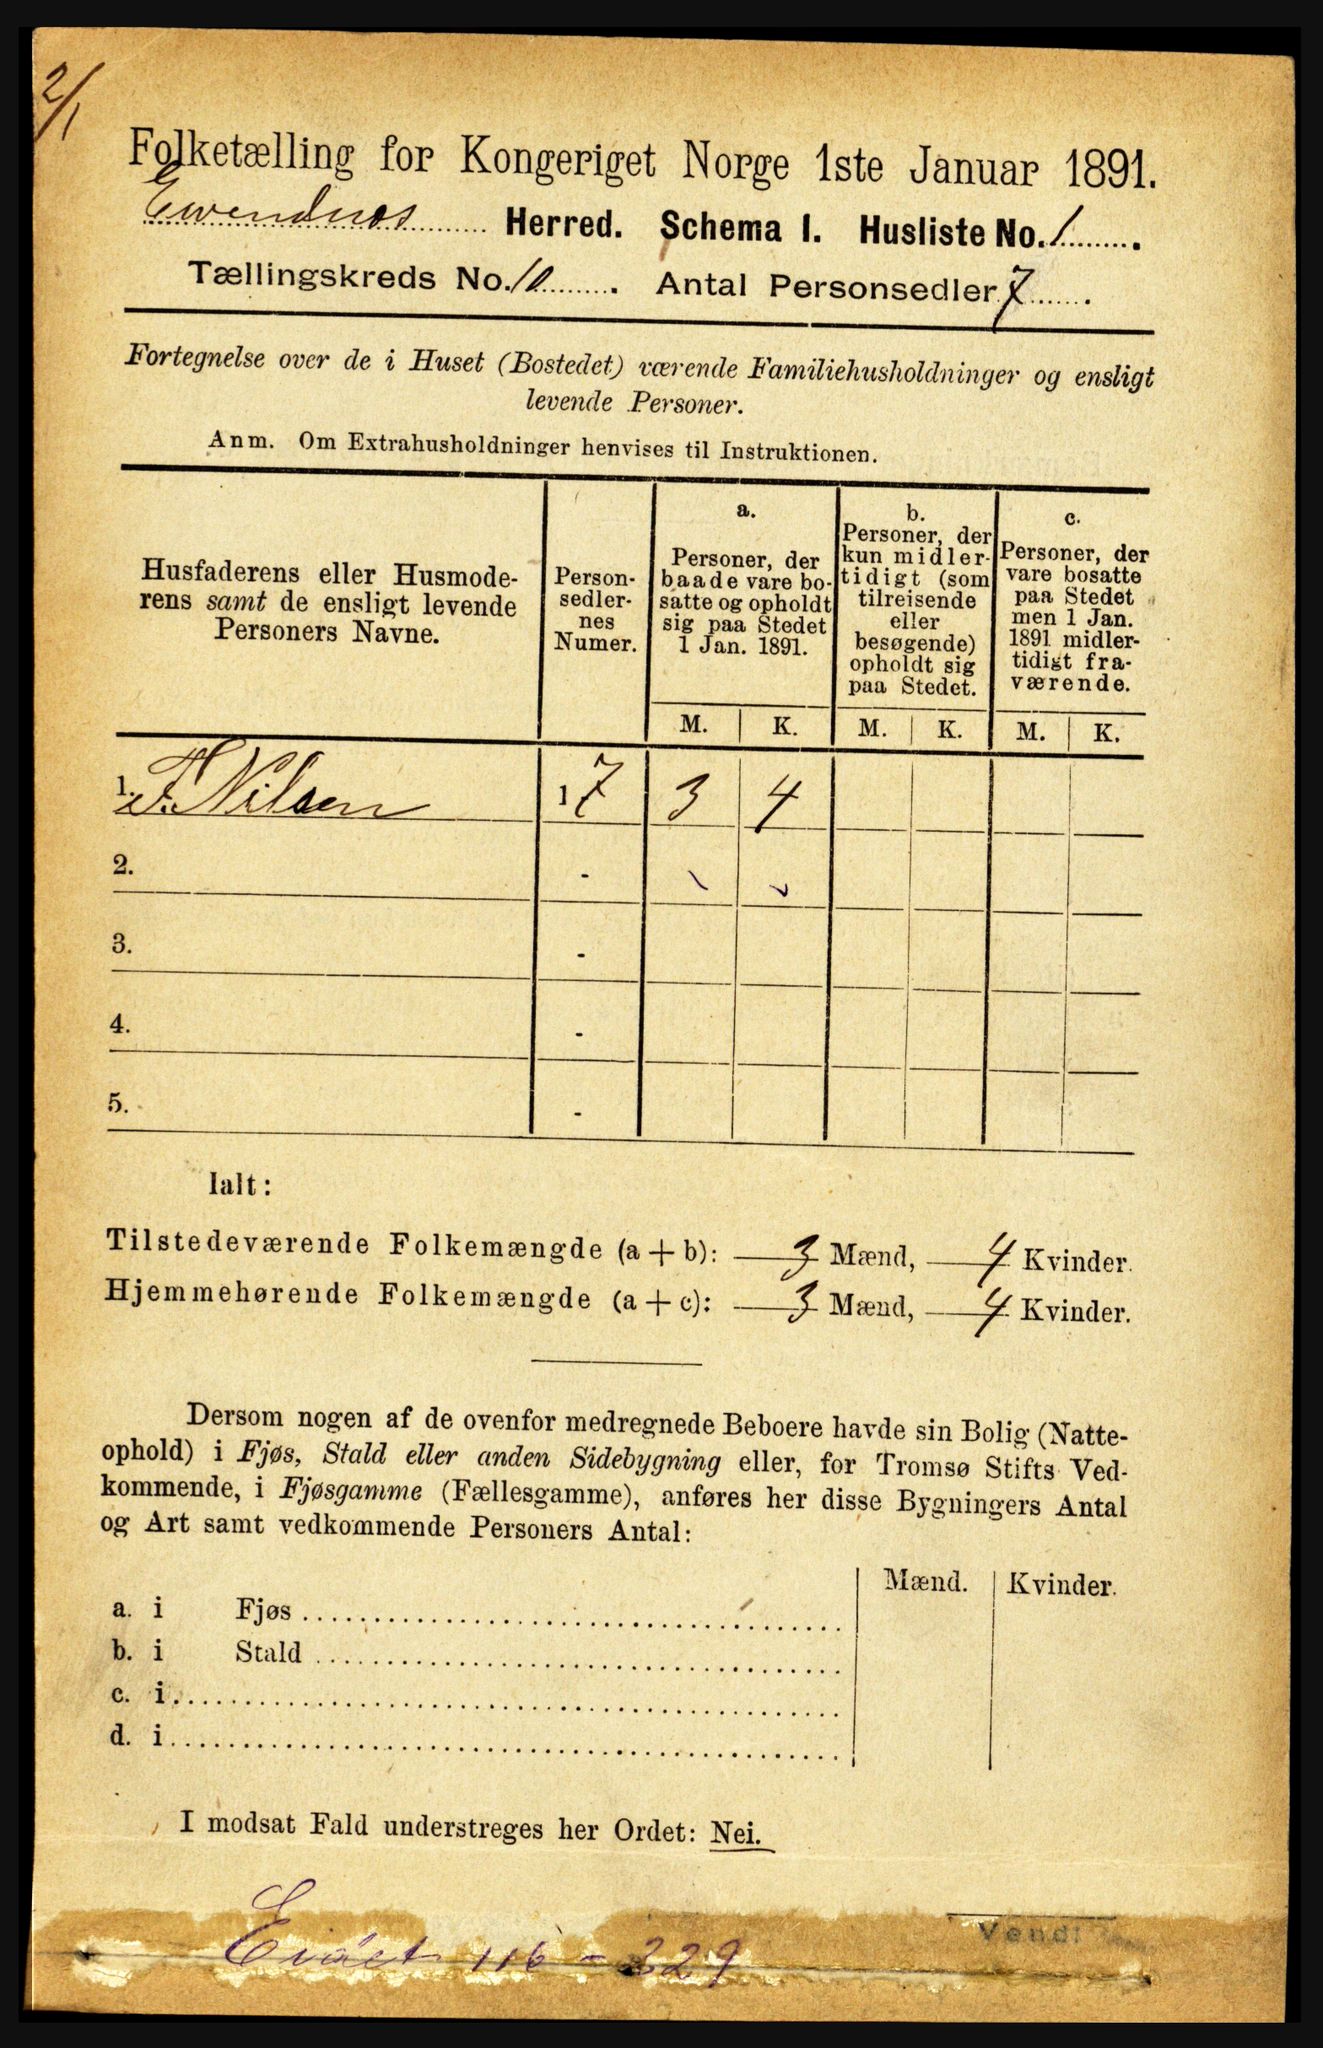 2/1
Folketælling for Kongeriget Norge 1ste Januar 1891.
Evendnæs Herred. Schema I. Husliste No. 1.
Tællingskreds No. 10. Antal Personsedler 7.
Fortegnelse over de i Huset (Bostedet) værende Familiehusholdninger og ensligt
levende Personer.
Anm. Om Extrahusholdninger henvises til Instruktionen.
Husfaderens eller Husmode-
rens samt de ensligt levende
Personers Navne.
Person-
sedler-
nes
Numer.
a.
Personer, der
baade vare bo-
satte og opholdt
sig paa Stedet
1 Jan. 1891.
b.
Personer, der
kun midler-
tidigt (som
tilreisende
eller
besøgende)
opholdt sig
paa Stedet.
c.
Personer, der
vare bosatte
paa Stedet
men 1 Jan.
1891 midler-
tidigt fra-
værende.
M. K. M. K. M. K.
1. F. Nilsen 1 7 3 4
2. -
3. -
4. -
5. -
Ialt:
Tilstedeværende Folkemængde (a + b): 3 Mænd, 4 Kvinder.
Hjemmehørende Folkemængde (a + c): 3 Mænd, 4 Kvinder.
Dersom nogen af de ovenfor medregnede Beboere havde sin Bolig (Natte-
ophold) i Fjøs, Stald eller anden Sidebygning eller, for Tromsø Stifts Ved-
kommende, i Fjøsgamme (Fællesgamme), anføres her disse Bygningers Antal
og Art samt vedkommende Personers Antal:
Mænd. Kvinder.
a. i Fjøs
b. i Stald
c. i
d. i
I modsat Fald understreges her Ordet: Nei.
Vend!
116 - 229